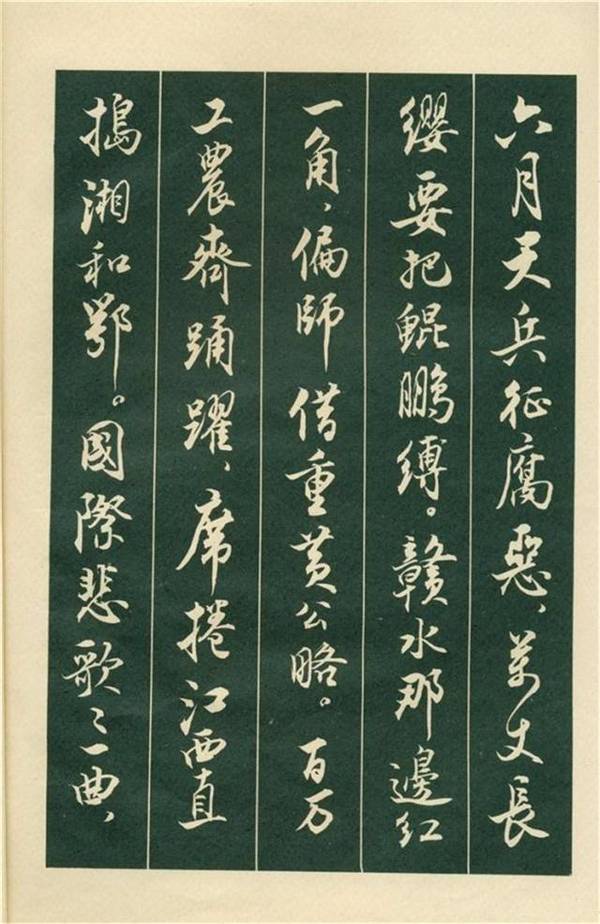 六月天兵征腐惡、萬丈長
纓要把鯤鵬縛。贛水那邊紅
一角、偏師借重黄公略。百万
工農齊踴躍、席捲江西直
搗湘和鄂。國際悲歌歌一曲、